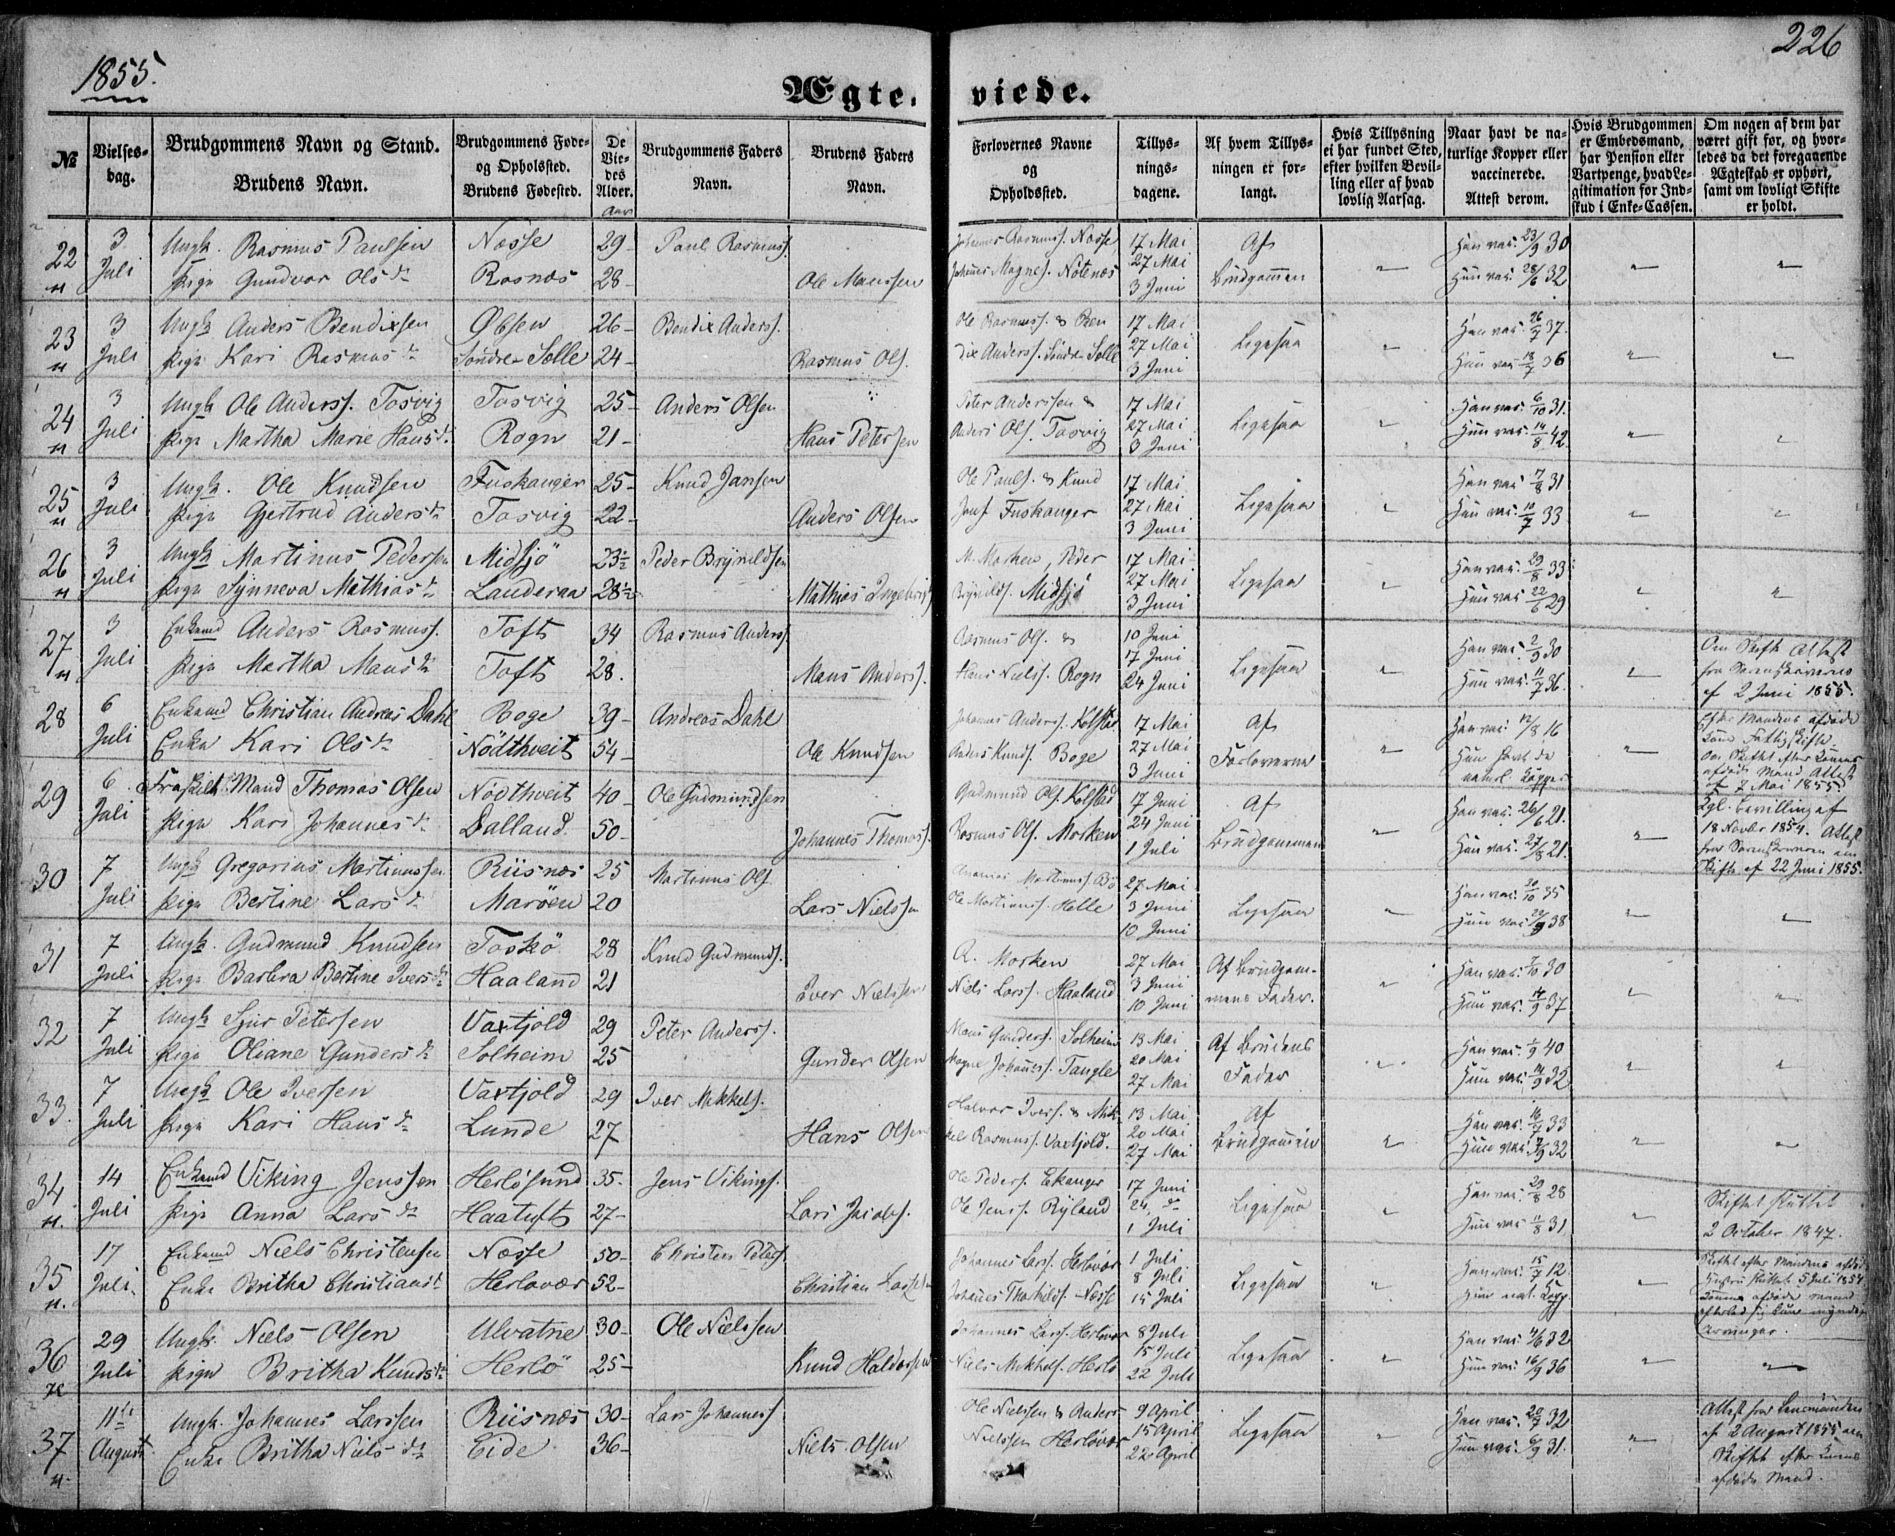 1855.
226
Ægte. viede.
№
Vielses-dag.
Brudgommens Navn og Stand.
Brudens Navn.
Brudgommens Føde- og Opholssted.
Brudens Fødested.
De Vie-des Alder.
Aar
Brudgommens Faders Navn.
Brudens Faders Navn.
Forlovernes Navne og Opholdssted.
Tillys-nings-dagene.
Af hvem Tillys-ningen er for-langt.
Hvis Tillysning ei har fundet Sted, efter hvilken Bevil-ling eller af hvad lovlig Aarsag.
Naar havt de na-turlige Kopper eller vaccinerede.
Attest derom.
Hvis Brudgommen er Embedsmand, har Pension eller Vartpenge, hvad Le-gitimation for Ind-skud i Enke-Cassen.
Om nogen af dem har været gift for, og hvor-ledes da det foregaaende Ægteskab er ophørt, samt om lovligt Skifte er holdt.
22 3 Juli Ungk. Rasmus Paulsen Næsse 29 Paul Rasmuss. Johannes Rasmuss. Næsse 17 Mai Af Han vac. 23/9 30
Pige Gundvor Olsdr Rosnæs 28 Ole Monssen Johannes Magnes. Nötenæs 27 Mai 3 Juni Brudgommen Hun vac. 28/6 32
23 3 Juli Ungk Anders Bendixsen Öbsen 26 Bendix Anderss. Ole Rasmuss. & Ben 17 Mai Ligesaa Han vac. 26/7 37.
Pige Kari Rasmusdr Söndre Solle 24 Rasmus Ols. dix Anderss. Söndre Solle 27 Mai 3 Juni Hun vac. 18/7 36
24 3 Juli Ungk Ole Anderss. Tosvig Tosvig 25 Anders Olsen Peter Anderssen & 17 Mai Ligesaa Han vac. 6/10 31.
Pige Martha Marie Hansdr. Rogn 21 Hans Petersen Anders Ols. Tosvig 27 Mai 3 Juni Hun vac. 14/8 42
25 3 Juli Ungk. Ole Knudsen Fuskanger 25 Knud Jansen Ole Pauls. & Knud 17 Mai Ligesaa Han vac. 7/8 31
Pige Gjertrud Andersdr Tosvig 22 Anders Olsen Fuskanger 27 Mai 3 Juni Hun vac. 10/7 33
26 3 Juli Ungk Martinus Pedersen Midsjö 23½ Peder Brynildsen M. Morken, Peder 17 Mai Ligesaa Han vac. 29/8 33
Pige Synneva Mathiasdr Landeraa 28½ Mathias Brynilds. Midsjö 27 Mai 3 Juni Hun vac 22/6 29
27 3 Juli Enkemd Anders Rasmuss. Toft 34 Rasmus Anderss. Rasmus Ols. & 10 Juni Ligesaa Han vac. 2/9 30 Om Skifte Attest
Pige Martha Monsdr Toft 28. Mons Anderss. Hans Nielss. Rogn 17 Juni 24 Juni Hun vac. 11/7 36. fra Sorenskriveren af 2 Juni 1855.
28 6 Juli Enkemd Christian Andreas Dahl Boge 39 Andreas Dahl Johannes Anders. Kolstad 17 Mai Af Han vac. 12/8 16
Enken Kari Olsdr Nödthveit 54 Ole Knudsen Anders Knuds. Boge 27 Mai 3 Juni Forloverne Hun havt de naturl. Kopper af 7 Mai 1855.
29 6 Juli Fraskilt Mand Thomas Olsen Nödthveit 40 Ole Gudmundsen Gudmund Ols. Kolstad 17 Juni Af Han vac. 26/6 21. Kgl. Bevilling af
Pige Kari Johannesdr Dalland. 50 Johannes Thomass. Rasmus Ols. Morken 24 Juni 1 Juli Brudgommen Hun vac. 27/8 21. 18 Novbr 1854. Attest fra Sorenskriveren om Skifte af 22 Juni 1855.
30 7 Juli Ungk Gregorius Martinussen Riisnæs 25 Martinus Ols. Martinuss. Bö 27 Mai Ligesaa Han vac. 20/10 35
Pige Bertine Larsdr Maröen 20 Lars Nielssen Ole Martinuss. Helle 3 Juni 10 Juni Hun vac 29/9 38
31 7 Juli Ungk. Gudmund Knudsen Toskö 28 Knud Gudmunds. R. Morken 27 Mai Af Brudgom- Han vac. 7/10 30
Pige Barbra Bertine Iversdr Haaland 21 Iver Nielssen Niels Larss. Haaland 3 Juni 10 Juni mens Fader. Hun vac. 14/9 37.
32 7 Juli Ungk Sjur Petersen Vaxtjold 29 Peter Anderss. Mons Gunderss. Solheim 13 Mai Af Brudens Han vac. 1/9 40
Pige Oliane Gundersdr Solheim 25 Gunder Olsen Magne Johanness. Tangle 20 Mai 27 Mai Fader Hun vac. 14/9 32
33. 7 Juli Ungk Ole Iversen Vaxtjold 29 Iver Mikkels. Halvor Ivers. & Mik- 13 Mai Af Han vac. 16/7 33
Pige Kari Hansdr Lunde 27 Hans Olsen kel Rasmuss Vaxtjold. 20 Mai 27 Mai Brudgommen Hun vac. 9/9 32
34 14 Juli Enkemd Viking Jenssen Herlösund 35. Jens Vikings. Ole Peders. Ekanger 17 Juni Ligesaa Han vac. 29/8 28 Skiftet sluttet
Pige Anna Larsdr Haatuft 27 Lars Jacobs. Ole Jenss. Ryland 24. do 1 Juli Hun vac 11/8 31 2 October 1847.
35 17 Juli. Enkemd Niels Christensen Næsse 50 Christen Peters. Johannes Larss. Herlövær 1 Juli Ligesaa Han vac. 15/7 12 Skiftet efter Mandens afdöde Hustru sluttet 5 Juli 1854
Enke Britha Christiansdr Herlovær 52 Christian Johannes Næsse 8 Juli 15 Juli Hun nat. Kopp. afdöde Mand efterlod sig kun myndige Arvinger.
36 29 Juli Ungk. Niels Olsen Ulvatne 30 Ole Nielssen Johannes Larss. Herlövær 8 Juli Ligesaa Han vac. 4/6 32
Pige Britha Knudsdr Herlö 25 Knud Haldorsen Niels Mikkels. Herlö 15 Juli 22 Juli Hun vac. 16/9 36
37 11te August Ungk. Johannes Larssen Riisnæs 30 Lars Johanness Ole Nielssen & Anders 9 April Ligesaa Han vac. 20/7 32 Attest fra Lensmanden af 2 August 1855 om
Enke Britha Nielsdr Eide 36 Niels Olsen Nielssen Herlövær 15 April 22 April Hun vac. 6/9 31. Skiftet efter Konens afdöde Mand.